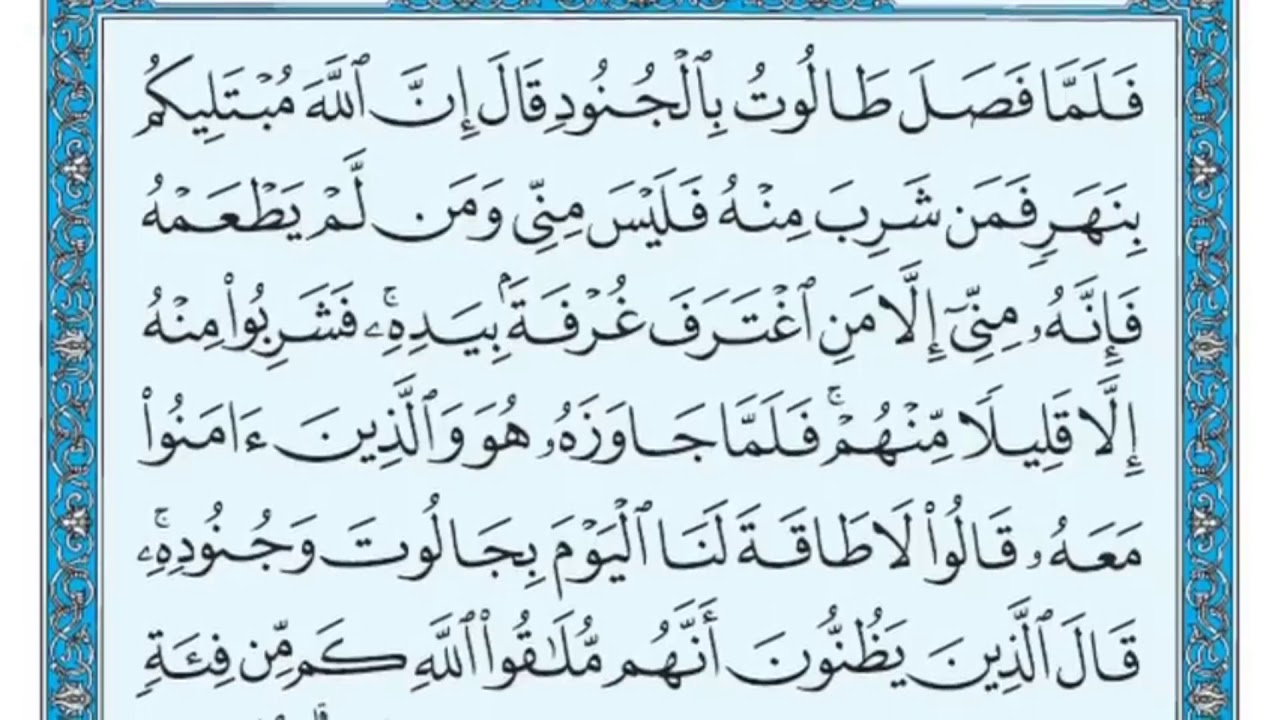 فَلَمَّا فَصَلَ طَالُوتُ بِٱلْجُنُودِ قَالَ إِنَّ ٱللَّهَ مُبْتَلِيكُم
بِنَهَرٍ فَمَن شَرِبَ مِنْهُ فَلَيْسَ مِنِّى وَمَن لَّمْ يَطْعَمْهُ
فَإِنَّهُۥ مِنِّىٓ إِلَّا مَنِ ٱغْتَرَفَ غُرْفَةَۢ بِيَدِهِۦۚ فَشَرِبُوا۟ مِنْهُ
إِلَّا قَلِيلًا مِّنْهُمْۚ فَلَمَّا جَاوَزَهُۥ هُوَ وَٱلَّذِينَ ءَامَنُوا۟
مَعَهُۥ قَالُوا۟ لَا طَاقَةَ لَنَا ٱلْيَوْمَ بِجَالُوتَ وَجُنُودِهِۦۚ
قَالَ ٱلَّذِينَ يَظُنُّونَ أَنَّهُم مُّلَٰقُوا۟ ٱللَّهِ كَم مِّن فِئَةٍ